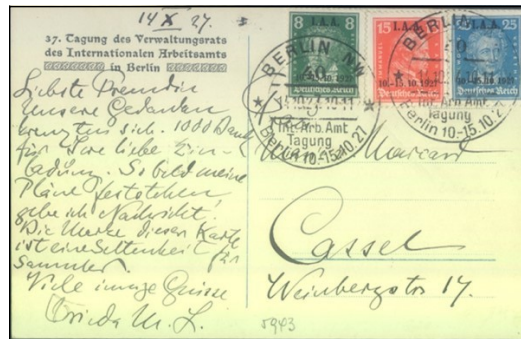 14 X 27.
37. Tagung des Verwaltungsrats
des Internationalen Arbeitsamts
in Berlin
Liebste Freundin
Unsere Gedanken
kreuzten sich. 1000 Dank
für Ihre liebe Ein-
ladung. Sobald meine
Pläne feststehen
gebe ich Nachricht!
Die Marke dieser Karte
ist eine Seltenheit für
Sammler.
Viele innige Grüsse
Frieda
8
I.A.A.
10.-15.10.1927
Deutsches Reich
15
I.A.A.
10.-15.10.1927
Deutsches Reich
25
I.A.A.
10.-15.10.1927
Deutsches Reich
BERLIN NW
40
Int. Arb. Amt
Tagung
Berlin 10.-15.10.27
BERLIN
Int. Arb. Amt
Tagung
Berlin 10.-15.10.27
Cassel
Weinbergstr 17.
5943